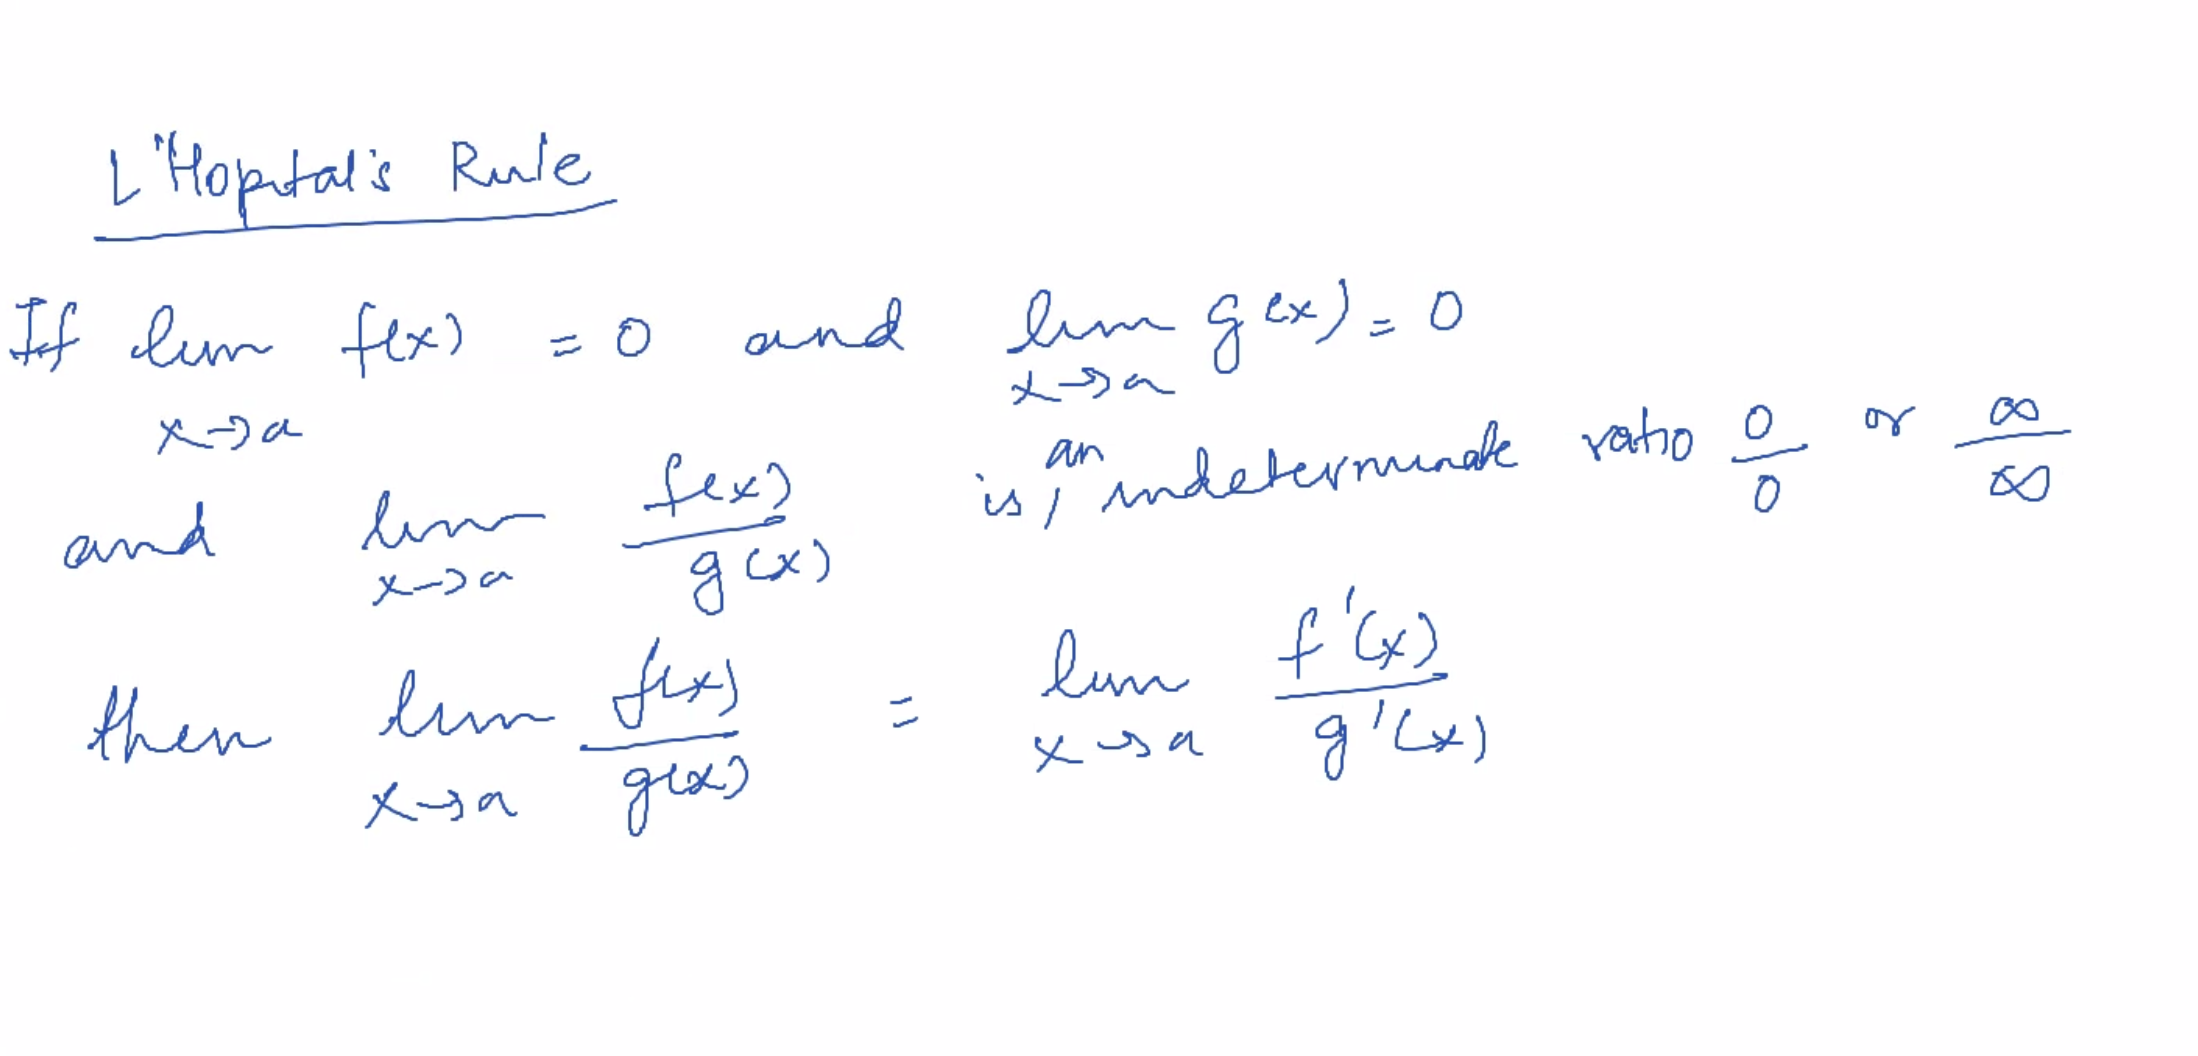 L'Hopital's Rule
If lim f(x) = 0 and lim g(x) = 0
x→a x→a
and lim f(x)/g(x) is an indeterminate ratio 0/0 or ∞/∞
x→a
then lim f(x)/g(x) = lim f'(x)/g'(x)
x→a x→a